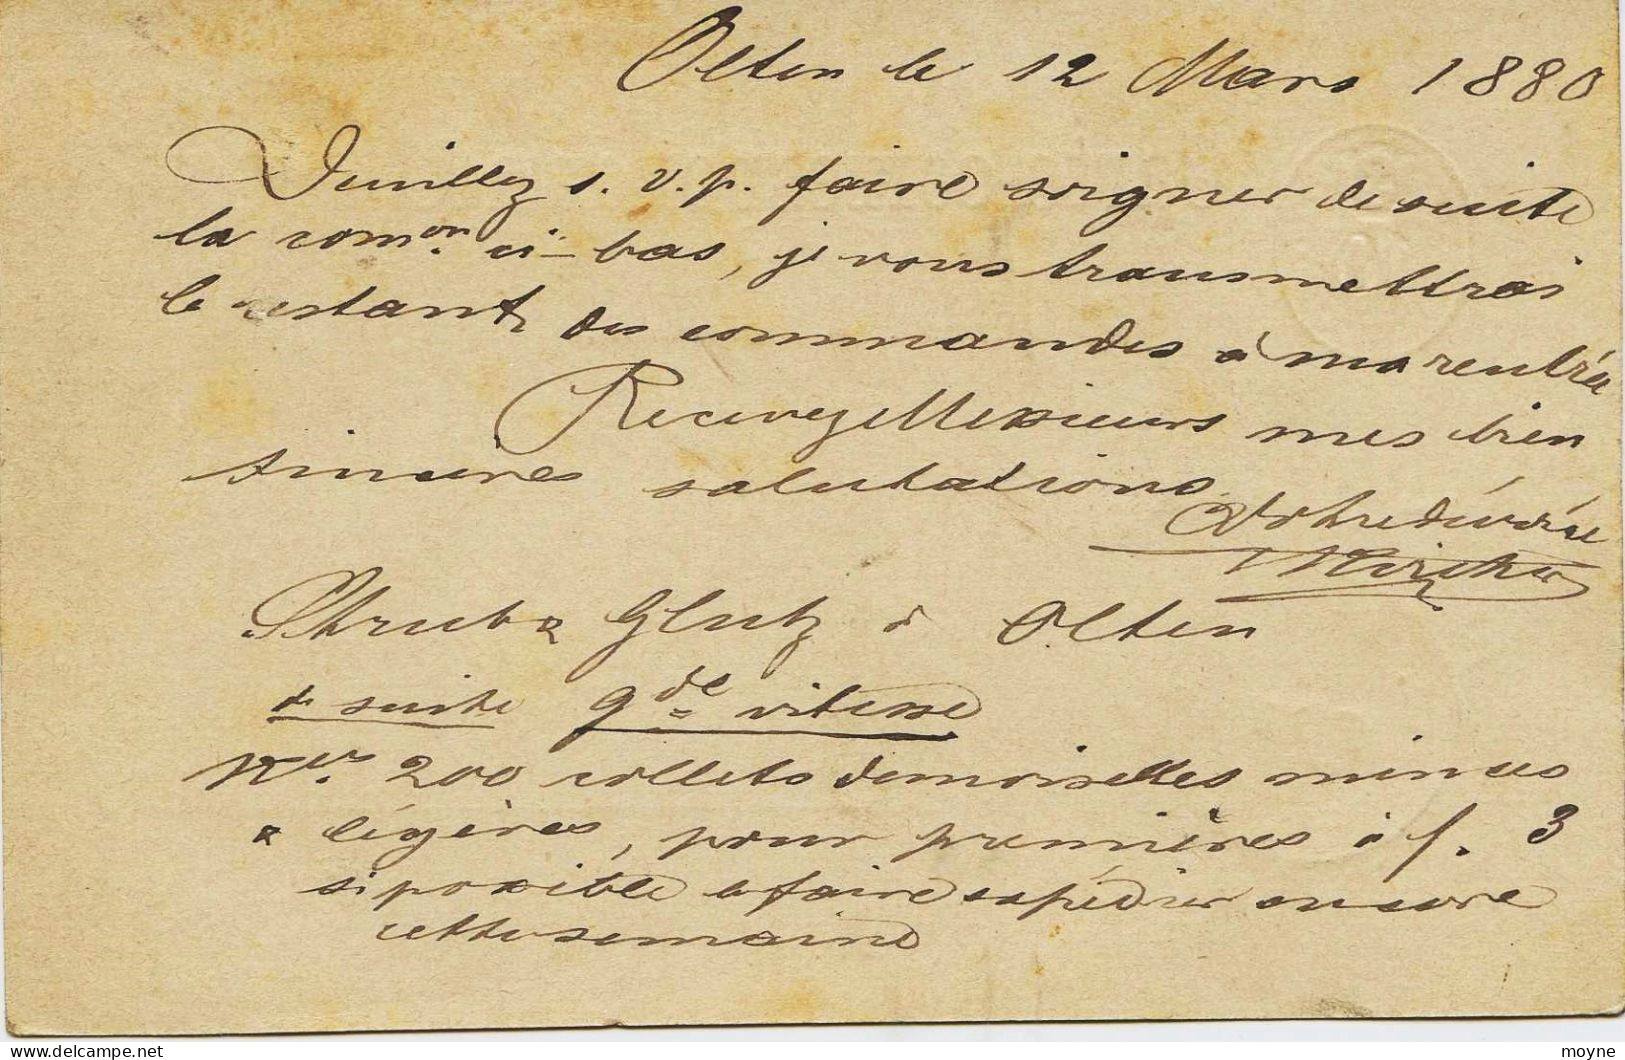 Olten le 12 Mars 1880
Veuillez s. v. p. faire soigner de suite
la com.on ci-bas, je vous transmettrai
le restant des commandes à ma rentrée
Recevez Messieurs mes bien
sincères salutations
Votre dévoué
Strub & Glutz à Olten
de suite gde vitesse
200 collets demoiselles minces
& légères, pour premières à f. 3
si possible le faire expédier encore
cette semaine
moyne
delcampe.net